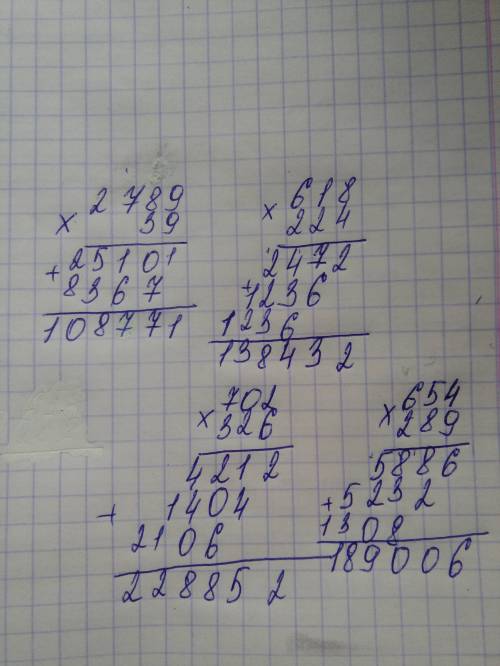 2789
× 39
25101
+ 8367
108771
× 618
224
2472
+ 1236
1236
138432
× 702
326
4212
+ 1404
2106
228852
× 654
289
5886
+ 5232
1308
189006